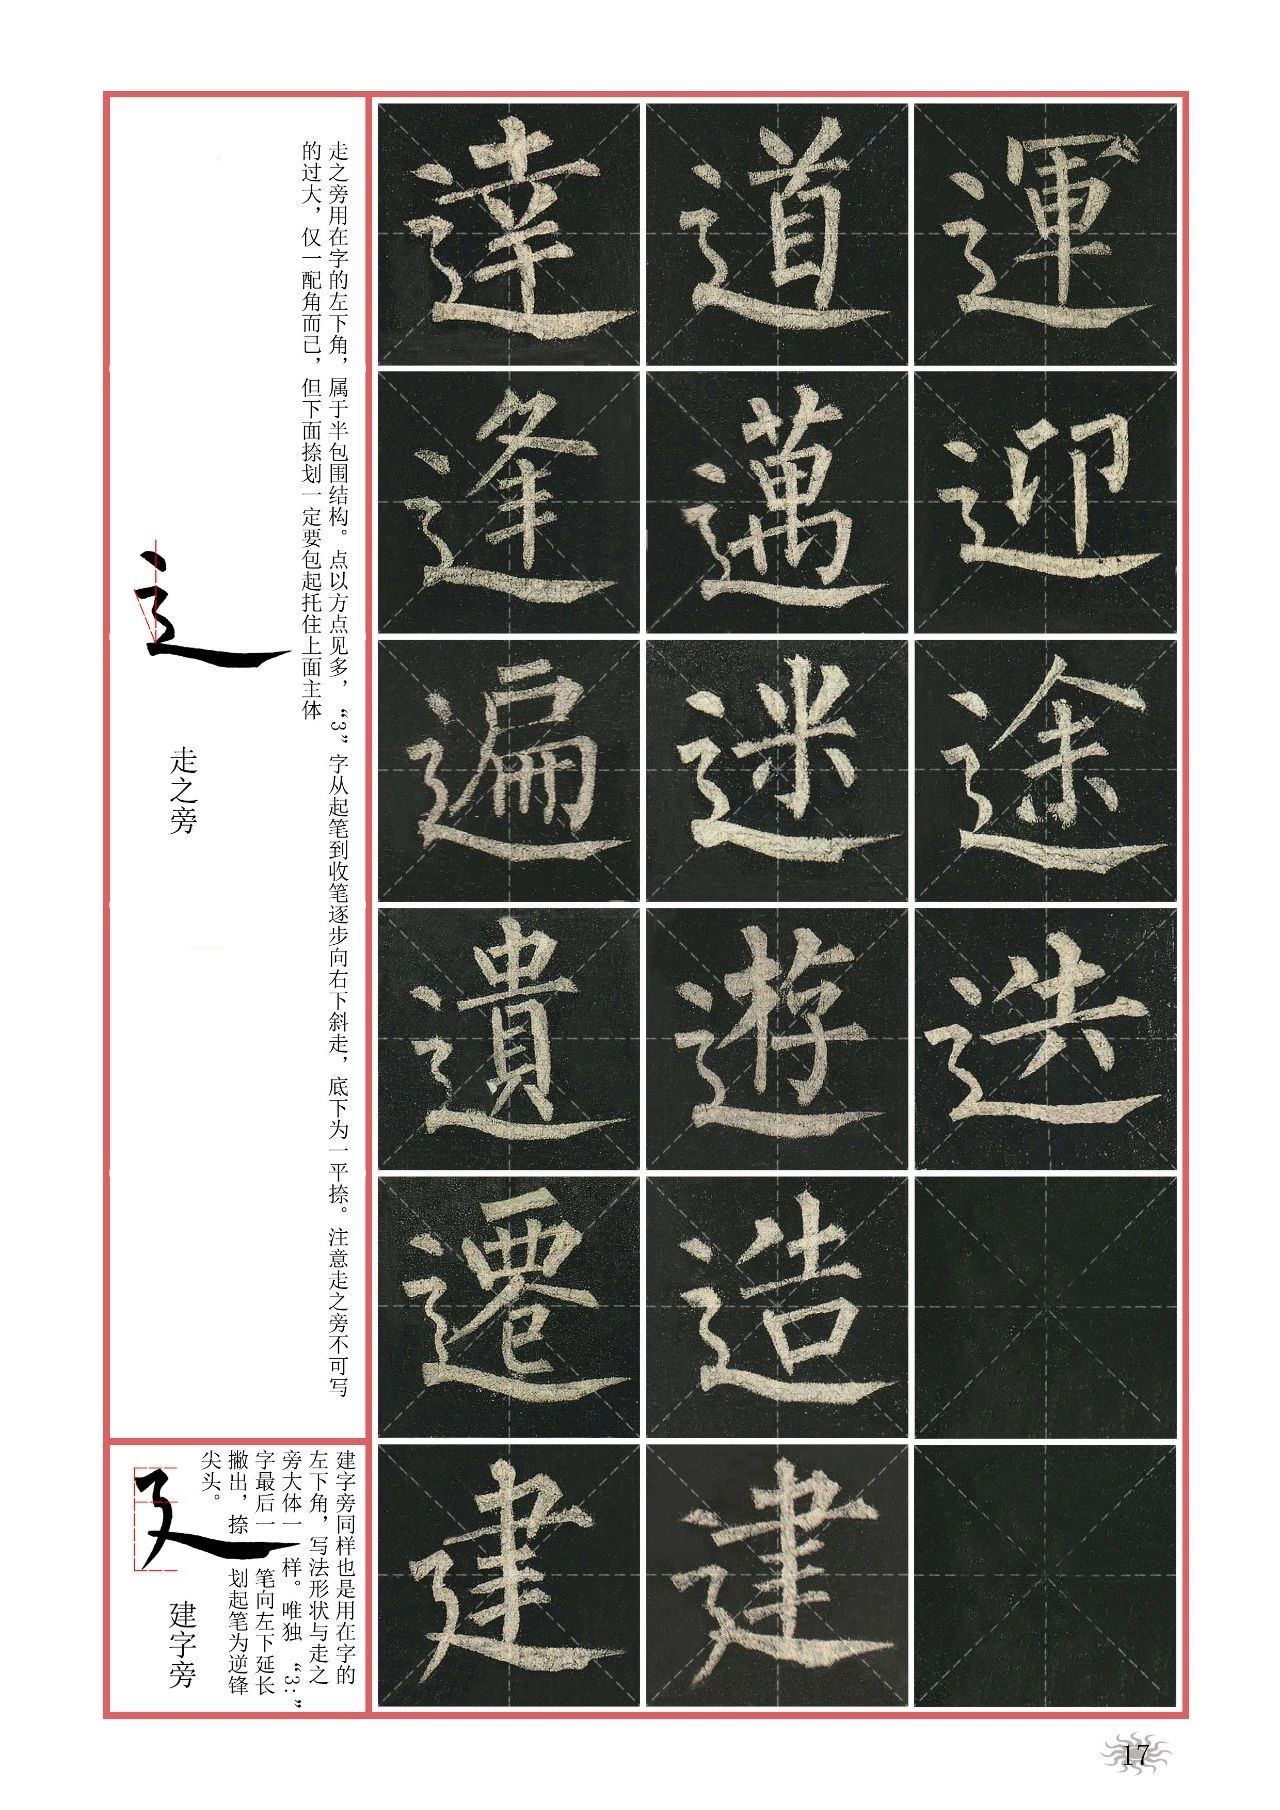 走之旁用在字的左下角，属于半包围结构。点以方点见多，“3”字从起笔到收笔逐步向右下斜走，底下为一平捺。注意走之旁不可写
的过大，仅一配角而已，但下面捺划一定要包起托住上面主体
辶
走之旁
達 道 運
逢 邁 迎
遍 迷 途
遺 遊
遷 造
建字旁同样也是用在字的
左下角，写法形状与走之
旁大体一样。唯独“3:”
字最后一笔向左下延长
撇出，捺划起笔为逆锋
尖头。
廴
建字旁
建 建
17